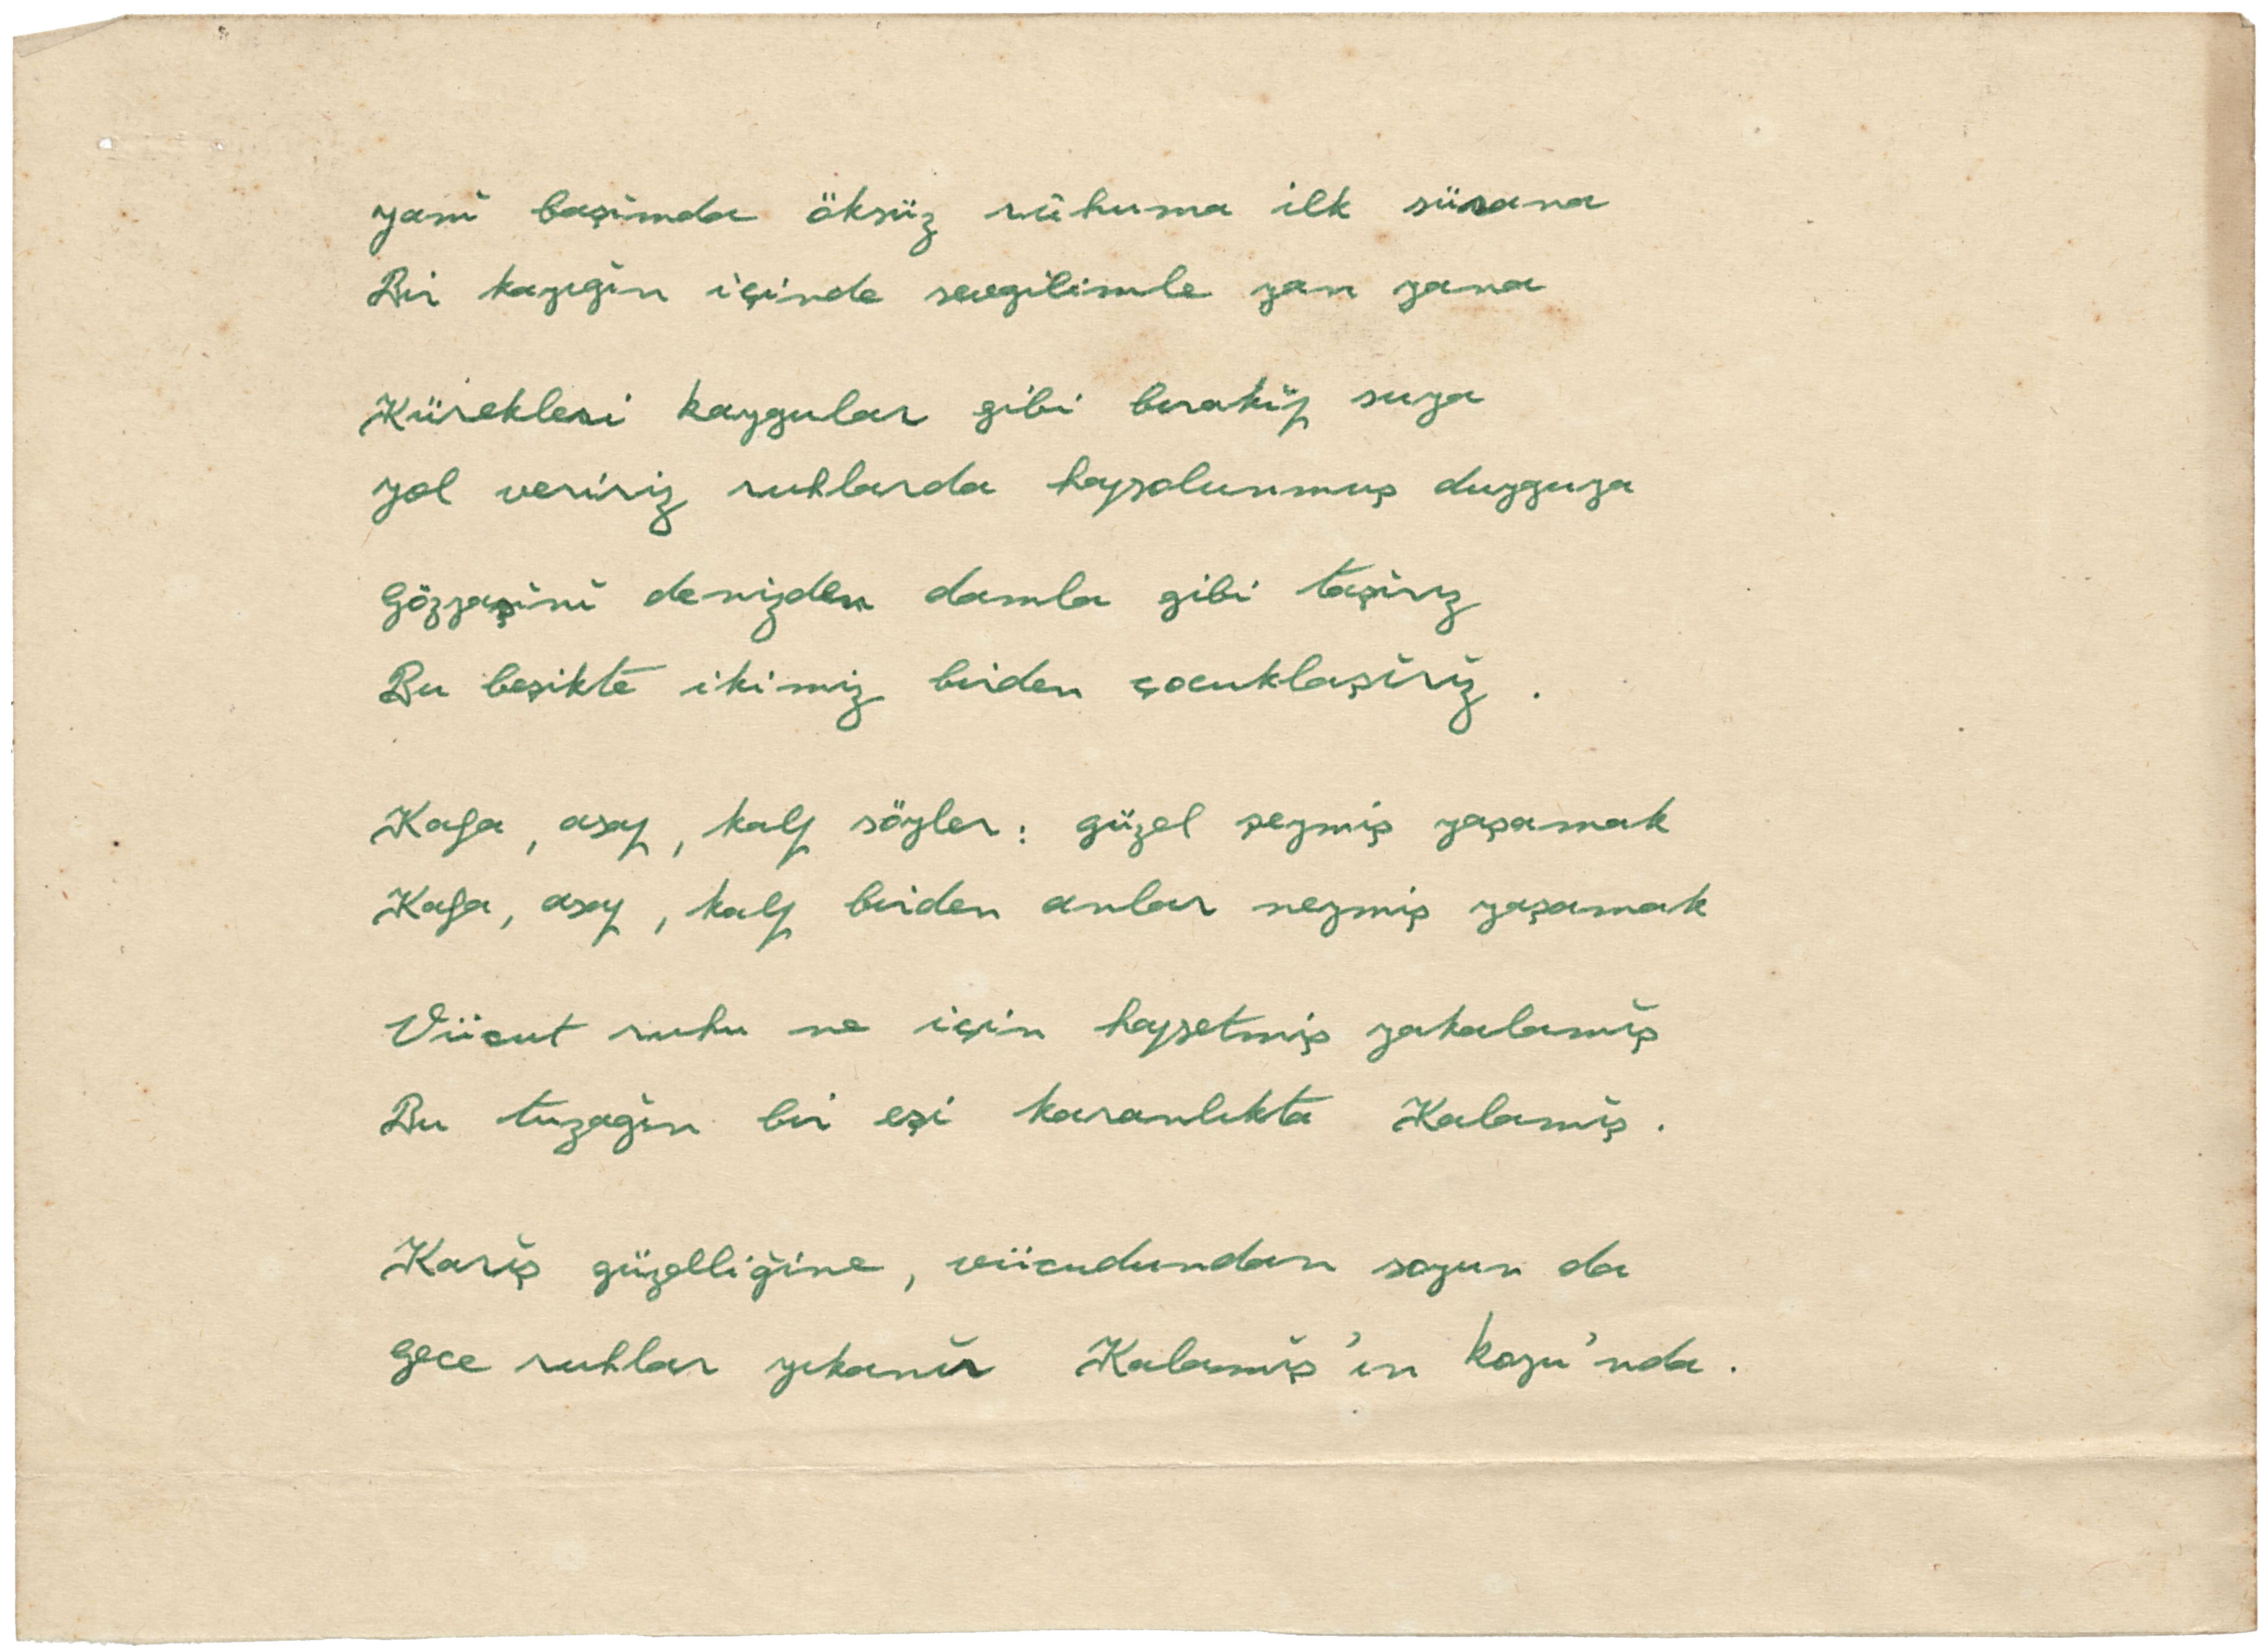 yanĭ başĭmda öksüz rûhuma ilk sürana
Bir kayığĭn içinde sevgilimle yan yana
Kürekleri kaygular gibi bırakĭp suya
yol veririz ruhlarda hapsolunmuş duyguya
Gözyaşĭnĭ denizden damla gibi taşĭrız
Bu beşikte ikimiz birden çocuklaşĭrĭz .
Kafa , asap , kalp söyler : güzel şeymiş yaşamak
Kafa , asap , kalp birden anlar neymiş yaşamak
Vücut ruhu ne için hapsetmiş yakalamĭş
Bu tuzağın bir eşi karanlıkta Kalamĭş .
Karĭş güzelliğine , vücudundan soyun da
Gece ruhlar yıkanĭr Kalamĭş'ın koyu'nda .